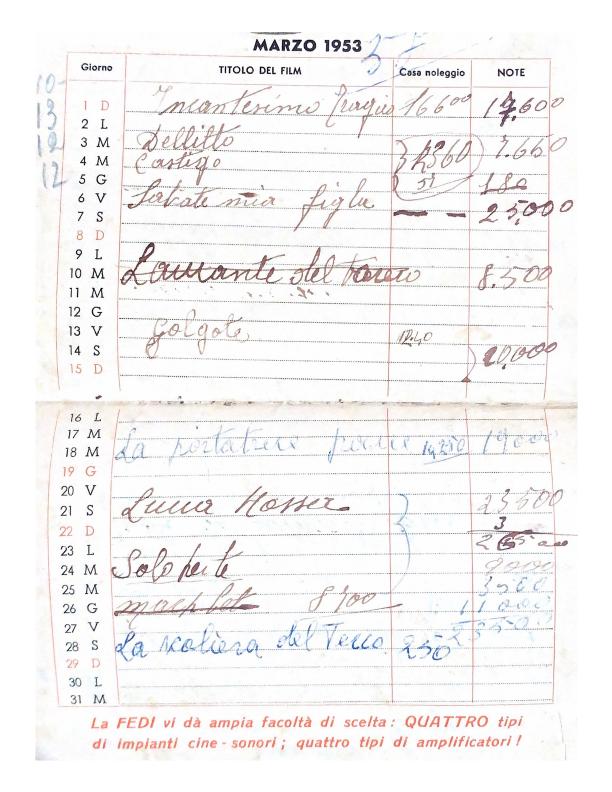 MARZO 1953
Giorno TITOLO DEL FILM Casa noleggio NOTE
10
13
12
12
1 D Incantesimo Tragico 16600 17.600
2 L
3 M Dellitto 7.650
4 M Castigo 12360
5 G 51 180
6 V Salvate mia figlia
7 S — — 25,000
8 D
9 L
10 M Lamante del torero 8.500
11 M
12 G
13 V Golgota 12.40
14 S 10,000
15 D
16 L
17 M
18 M La portatrice pane 14250 19000
19 G
20 V
21 S Luna Rossa 23500
22 D 3
23 L
24 M Solo per te 9000
25 M 3500
26 G 8700 11000
27 V 23500
28 S La scoliera del Tecco 250
29 D
30 L
31 M
La FEDI vi dà ampia facoltà di scelta: QUATTRO tipi
di impianti cine-sonori; quattro tipi di amplificatori!